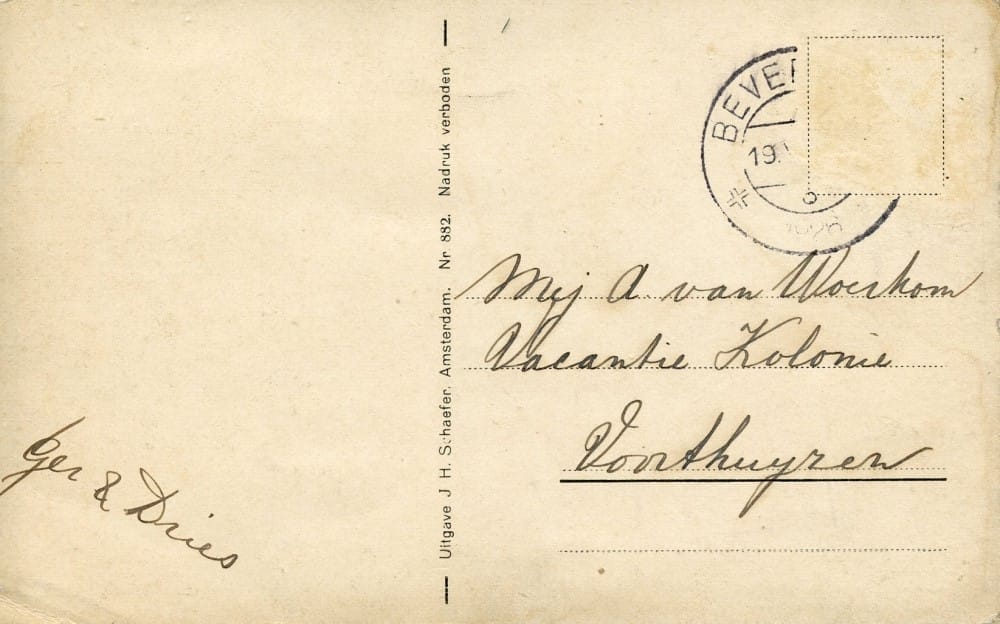 Ger & Dries
Uitgave J. H. Schaefer. Amsterdam. Nr. 882. Nadruk verboden
BEVER
19
Mej A van Woerkom
Vacantie Kolonie
Voorthuyzen